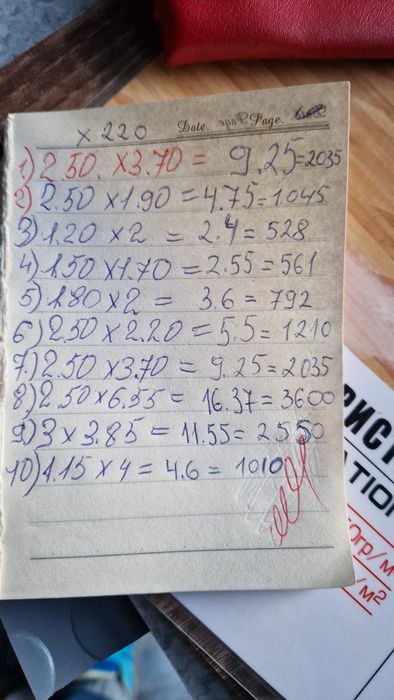 x 220 Date. Page.
1) 2.50. x3.70 = 9.25=2035
2) 2.50 x1.90 = 4.75=1045
3) 1.20 x 2 = 2.4 = 528
4) 1.50 x1.70 = 2.55 = 561
5) 1.80 x 2 = 3.6 = 792
6) 2.50 x 2.20 = 5.5 = 1210
7.) 2.50 x3.70 = 9.25 = 2035
8) 2.50 x6.55 = 16.37 = 3600
9) 3 x 3.85 = 11.55 = 2550
10) 1.15 x 4 = 4.6 = 1010
РИСТ
ATION
0гр/м
/м²